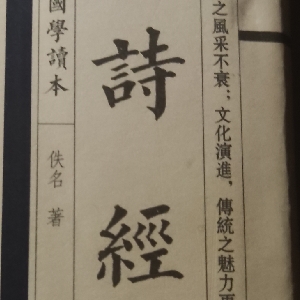 之風采不衰；文化演進，傳統之魅力更
詩經
國學讀本
佚名 著